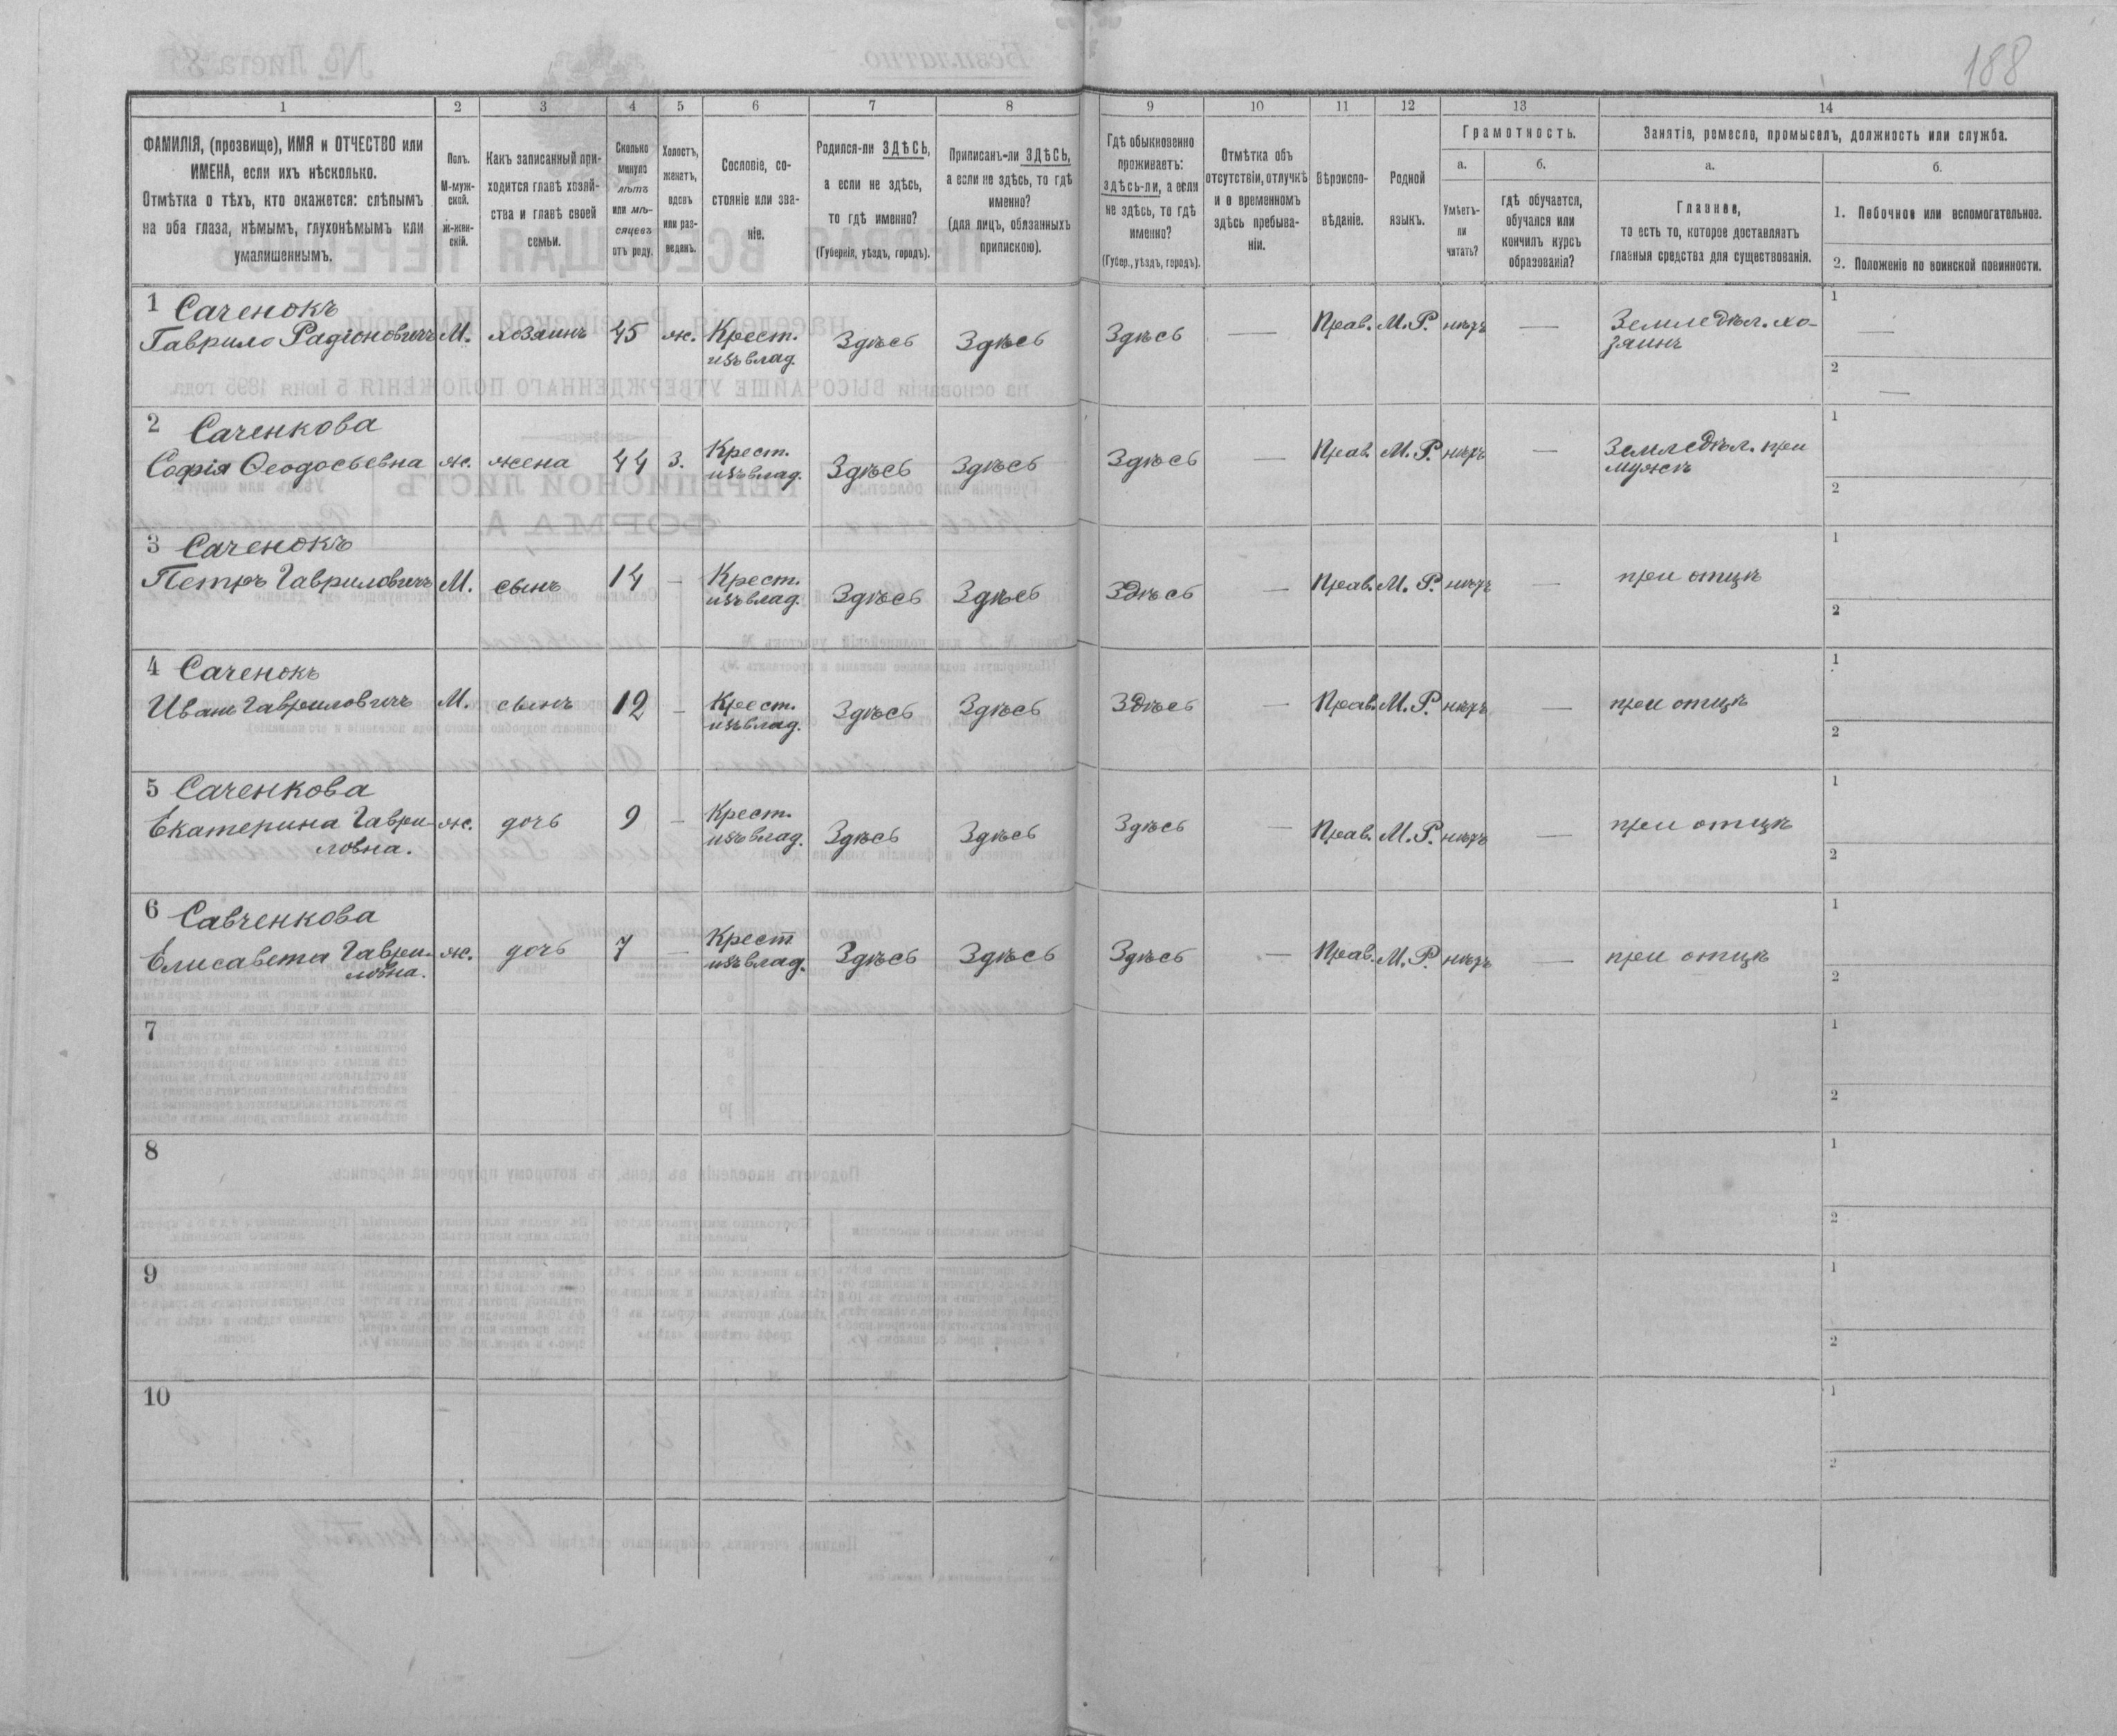 188
1 2 3 4 5 6 7 8 9 10 11 12 13 14
ФАМИЛІЯ, (прозвище), ИМЯ и ОТЧЕСТВО или
ИМЕНА, если ихъ нѣсколько.
Отмѣтка о тѣхъ, кто окажется: слѣпымъ
на оба глаза, нѣмымъ, глухонѣмымъ или
умалишеннымъ.
Полъ.
М-муж-
ской.
Ж-жен-
скій.
Какъ записанный при-
ходится главѣ хозяй-
ства и главѣ своей
семьи.
Сколько
минуло
лѣтъ
или мѣ-
сяцевъ
отъ роду.
Холостъ,
женатъ,
вдовъ
или раз-
веденъ.
Сословіе, со-
стояніе или зва-
ніе.
Родился-ли ЗДѢСЬ,
а если не здѣсь,
то гдѣ именно?
(Губернія, уѣздъ, городъ).
Приписанъ-ли ЗДѢСЬ,
а если не здѣсь, то гдѣ
именно?
(для лицъ, обязанныхъ
припискою).
Гдѣ обыкновенно
проживаетъ:
здѣсь-ли, а если
не здѣсь, то гдѣ
именно?
(Губер., уѣздъ, городъ).
Отмѣтка объ
отсутствіи, отлучкѣ
и о временномъ
здѣсь пребыва-
ніи.
Вѣроиспо-
вѣданіе.
Родной
языкъ.
Грамотность.
а.
Умѣетъ-
ли
читать?
б.
гдѣ обучается,
обучался или
кончилъ курсъ
образованія?
Занятіе, ремесло, промыселъ, должность или служба.
а.
Главное,
то есть то, которое доставляетъ
главныя средства для существованія.
б.
1. Побочное или вспомогательное.
2. Положеніе по воинской повинности.
1 Саченокъ
Гаврило Радіоновичъ М. хозяинъ 45 ж. Крест.
изъ влад. Здѣсь Здѣсь Здѣсь — Прав. М.Р. нѣтъ — Земледѣл. хо-
зяинъ
1 —
2 —
2 Саченкова
Софія Ѳеодосьевна ж. жена 44 З. Крест.
изъ влад. Здѣсь Здѣсь Здѣсь — Прав. М.Р. нѣтъ — Земледѣл. при
мужѣ
1
2
3 Саченокъ
Петръ Гавриловичъ М. сынъ 14 — Крест.
изъ влад. Здѣсь Здѣсь Здѣсь — Прав. М.Р. нѣтъ — при отцѣ
1
2
4 Саченокъ
Иванъ Гавриловичъ М. сынъ 12 — Крест.
изъ влад. Здѣсь Здѣсь Здѣсь — Прав. М.Р. нѣтъ — при отцѣ
1
2
5 Саченкова
Екатерина Гаври-
ловна. ж. дочь 9 — Крест.
изъ влад. Здѣсь Здѣсь Здѣсь — Прав. М.Р. нѣтъ — при отцѣ
1
2
6 Савченкова
Елисавета Гаври-
ловна. ж. дочь 7 — Крест
изъ влад. Здѣсь Здѣсь Здѣсь — Прав. М.Р. нѣтъ — при отцѣ
1
2
7
1
2
8
1
2
9
1
2
10
1
2